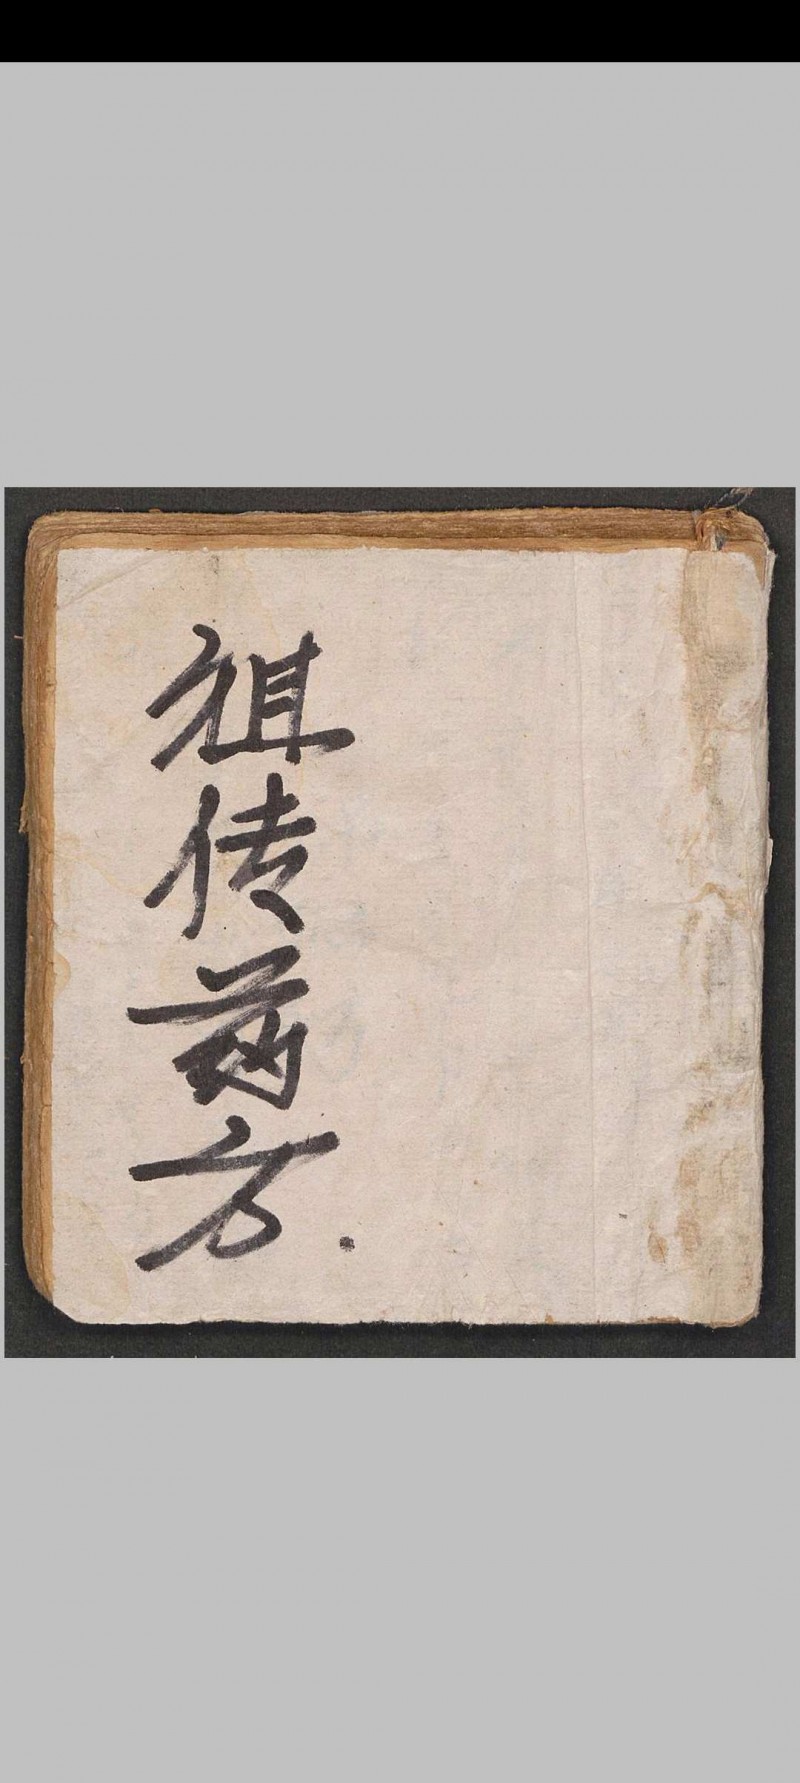 祖传药方.